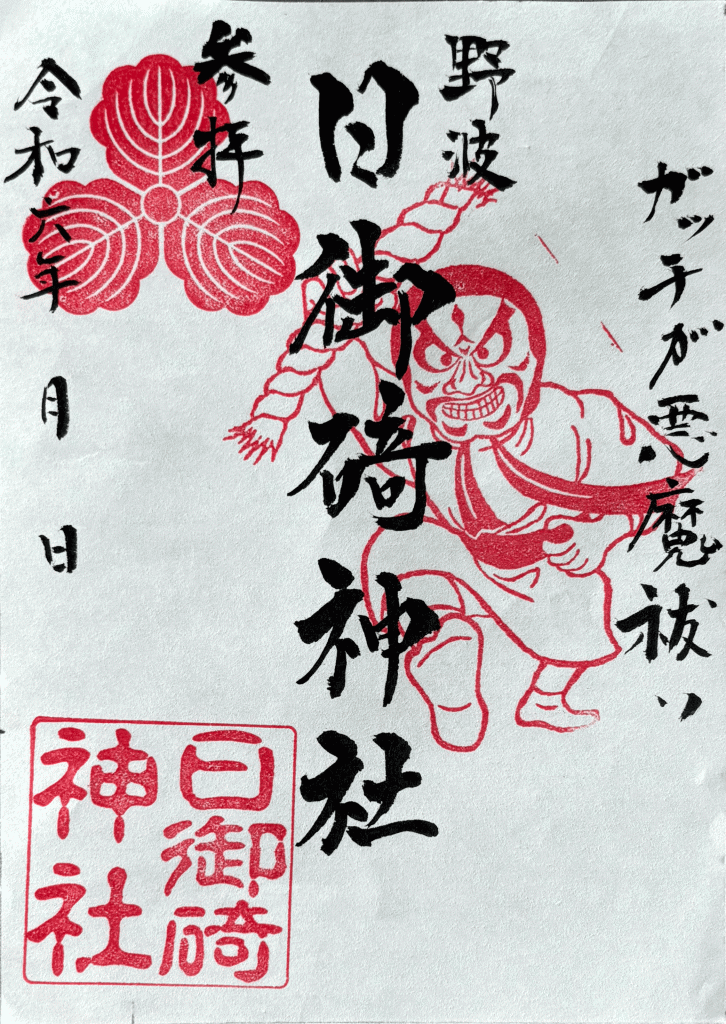 ガッチが悪魔祓い
野波
日御碕神社
参拝
令和六年 月 日
日御碕
神社